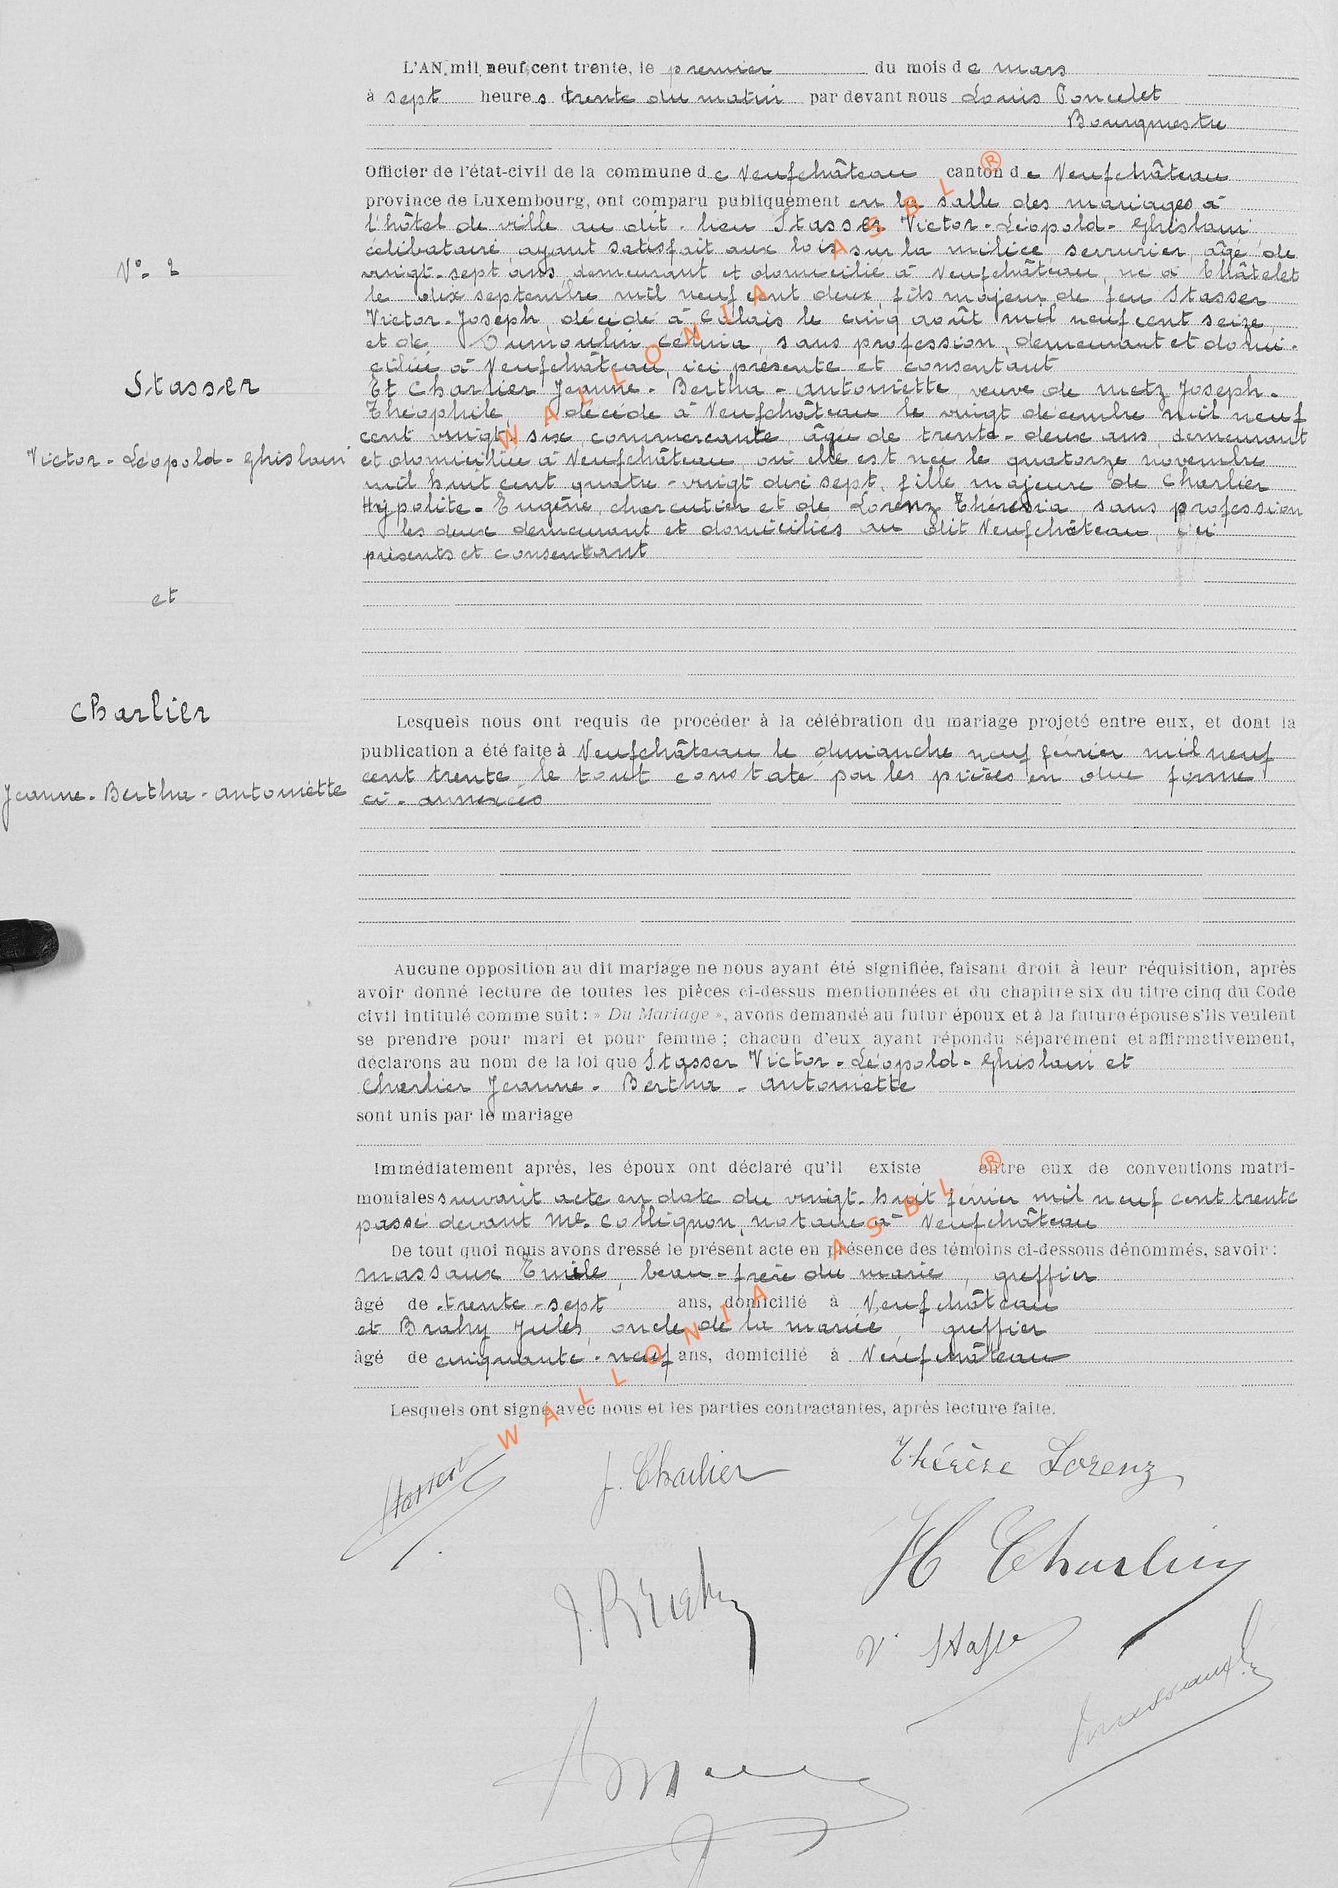 L'AN mil neuf cent trente, le premier du mois de mars
à sept heures trente du matin par devant nous Louis Poncelet
Bourgmestre
Officier de l'état-civil de la commune de Neufchâteau canton de Neufchâteau
province de Luxembourg, ont comparu publiquement en la salle des mariages à
l'hôtel de ville au dit - lieu Stasser Victor-Léopold-Ghislain
célibataire, ayant satisfait aux lois sur la milice, serrurier, âgé de
N° 2
vingt-sept ans, demeurant et domicilié à Neufchâteau, né à Châtelet
le dix septembre mil neuf cent deux, fils majeur de feu Stasser
Victor-Joseph, décédé à Calais le cinq août mil neuf cent seize,
et de Dumoulin, sans profession, demeurant et domi-
ciliée à Neufchâteau, ici présente et consentant
Stasser
Et Charlier Jeanne-Bertha-Antoinette, veuve de Metz Joseph-
Théophile, décédé à Neufchâteau le vingt décembre mil neuf
cent vingt-six, commerçante, âgée de trente-deux ans, demeurant
Victor-Léopold-Ghislain
et domiciliée à Neufchâteau, où elle est née le quatorze novembre
mil huit cent quatre-vingt dix sept, fille majeure de Charlier
Hypolite-Eugène, charcutier et de Lorenz Thérésia, sans profession
les deux demeurant et domiciliés au dit Neufchâteau, ici
présents et consentant
et
Charlier
Lesquels nous ont requis de procéder à la célébration du mariage projeté entre eux, et dont la
publication a été faite à Neufchâteau le dimanche neuf février mil neuf
cent trente, le tout constaté par les pièces en due forme
Jeanne-Bertha-Antoinette
ci-annexées
Aucune opposition au dit mariage ne nous ayant été signifiée, faisant droit à leur réquisition, après
avoir donné lecture de toutes les pièces ci-dessus mentionnées et du chapitre six du titre cinq du Code
civil intitulé comme suit : » Du Mariage », avons demandé au futur époux et à la future épouse s'ils veulent
se prendre pour mari et pour femme ; chacun d'eux ayant répondu séparément et affirmativement,
déclarons au nom de la loi que Stasser Victor-Léopold-Ghislain et
Charlier Jeanne-Bertha-Antoinette
sont unis par le mariage
Immédiatement après, les époux ont déclaré qu'il existe entre eux de conventions matri-
moniales suivant acte en date du vingt-huit février mil neuf cent trente
passé devant Me Collignon, notaire à Neufchâteau
De tout quoi nous avons dressé le présent acte en présence des témoins ci-dessous dénommés, savoir :
Massaux Emile, beau-frère du marié, greffier
âgé de trente-sept ans, domicilié à Neufchâteau
et Brahy Jules, oncle de la mariée, greffier
âgé de cinquante-neuf ans, domicilié à Neufchâteau
Lesquels ont signé avec nous et les parties contractantes, après lecture faite.
Stasser
J. Charlier
Thérèse Lorenz
H Charlier
J. Brahy
WALLONIA ASBL ®
WALLONIA ASBL ®